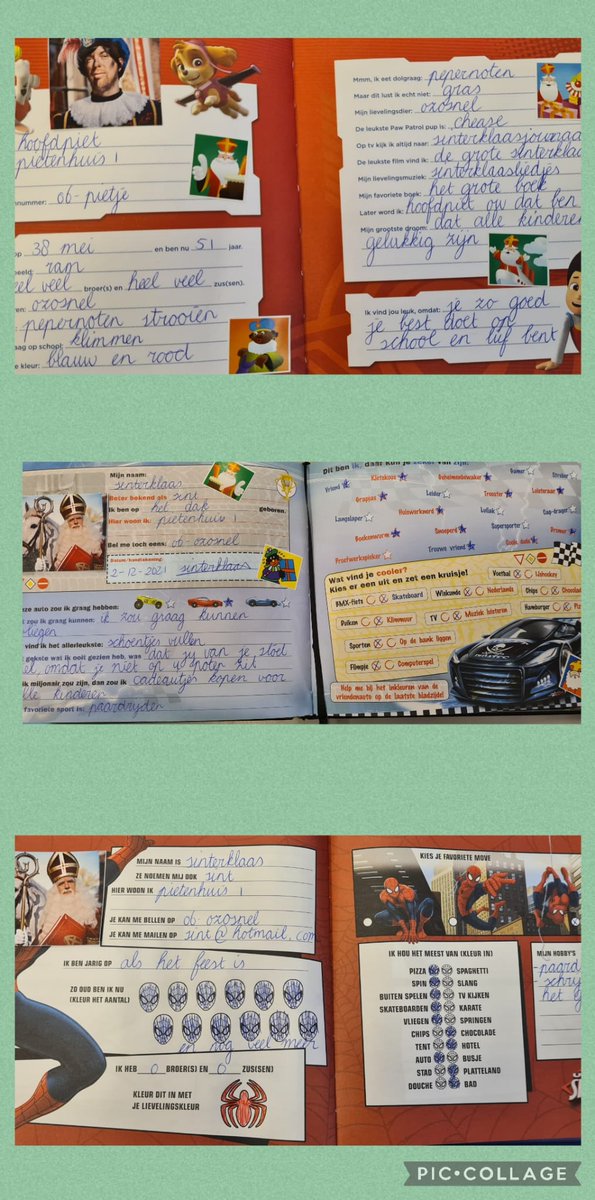 hoofdpiet
pietenhuis 1
nummer: 06-pietje
op 38 mei en ben nu 51 jaar.
beeld: ram
heel veel broer(s) en heel veel zus(sen).
en: ozosnel
pepernoten strooien
aag op school: klimmen
e kleur: blauw en rood
Mmm, ik eet dolgraag: pepernoten
Maar dit lust ik echt niet: gras
Mijn lievelingsdier: ozosnel
De leukste Paw Patrol pup is: chease
Op tv kijk ik altijd naar: sinterklaasjournaa
De leukste film vind ik: de grote sinterklaa
Mijn lievelingsmuziek: sinterklaasliedjes
Mijn favoriete boek: het grote boek
Later word ik: hoofdpiet ow dat ben
Mijn grootste droom: dat alle kinderen
gelukkig zijn
Ik vind jou leuk, omdat: je zo goed
je best doet op
school en lief bent
Mijn naam:
sinterklaas
Beter bekend als sint
Ik ben op het dak geboren.
Hier woon ik: pietenhuis 1
Bel me toch eens: 06-ozosnel
Datum/handtekening:
2-12-2021 sinterklaas
nze auto zou ik graag hebben:
t zou ik graag kunnen: ik zou graag kunnen
vliegen
vind ik het allerleukste: schoentjes vullen
gekste wat ik ooit gezien heb, was dat zy van je stoel
el, omdat je niet op 4 poten zit
ik miljonair zou zijn, dan zou ik cadeautjes kopen voor
lle kinderen
favoriete sport is: paardrijden
Dit ben ik, daar kun je zeker van zijn:
Vriend
Kletskous
Geheimenbewaker
Gamer
Streber
Grapjas
Leider
Trooster
Luisteraar
Langslaper
Huiswerknerd
Lolbak
Dag-drager
Boekenwurm
Snoeperd
Supersporter
Dromer
Proefwerkpieker
Trouwe vriend
Coole dude
Wat vind je cooler?
Kies er een uit en zet een kruisje!
Voetbal IJshockey
BMX-fiets Skateboard
Wiskunde Nederlands
Chips Chocola
Pulken Klimmuur
TV Muziek luisteren
Hamburger Piz
Sporten Op de bank liggen
Filmpje Computerspel
Help me bij het inkleuren van de
vriendenauto op de laatste bladzijde!
MIJN NAAM IS sinterklaas
ZE NOEMEN MIJ OOK sint
HIER WOON IK pietenhuis 1
JE KAN ME BELLEN OP 06-ozosnel
JE KAN ME MAILEN OP sint@hotmail.com
IK BEN JARIG OP als het feest is
ZO OUD BEN IK NU
(KLEUR HET AANTAL)
en nog veel meer
IK HEB 0 BROER(S) EN 0 ZUS(SEN)
KLEUR DIT IN MET
JE LIEVELINGSKLEUR
KIES JE FAVORIETE MOVE
IK HOU HET MEEST VAN (KLEUR IN)
PIZZA SPAGHETTI
SPIN SLANG
BUITEN SPELEN TV KIJKEN
SKATEBOARDEN KARATE
VLIEGEN SPRINGEN
CHIPS CHOCOLADE
TENT HOTEL
AUTO BUSJE
STAD PLATTELAND
DOUCHE BAD
MIJN HOBBY'S
-paard
schry
het g
PIC•COLLAGE